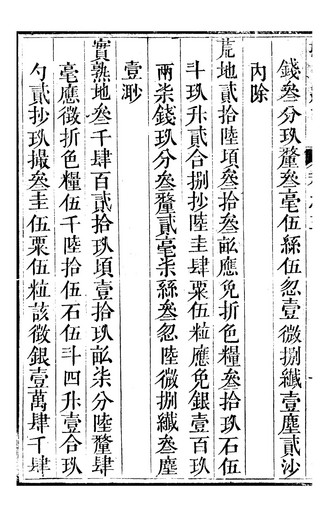 錢叁分玖釐叁毫伍絲伍忽壹微捌纖壹塵貳沙
內除
荒地貳拾陸頃叁拾叁畝應免折色糧叁拾玖石伍
斗玖升貳合捌抄陸圭肆粟伍粒應免銀壹百玖
兩柒錢玖分叁釐貳毫柒絲叁忽陸微捌纖叁塵
壹渺
實熟地叁千肆百貳拾玖頃壹拾玖畝柒分陸釐肆
毫應徵折色糧伍千陸拾伍石伍斗四升壹合玖
勺貳抄玖撮叁圭伍粟伍粒該徵銀壹萬肆千肆